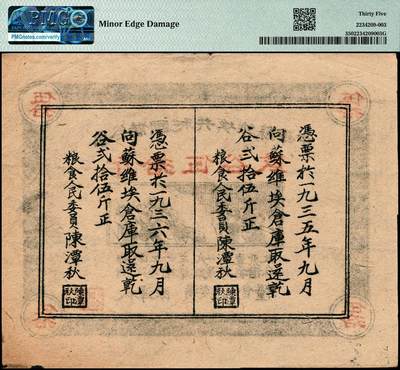 PMG
PMGnotes.com/verify
Minor Edge Damage
Thirty Five
2234209-003
3502234209003G
憑票於一九三五年九月
向蘇維埃倉庫取還乾
谷弍拾伍斤正
粮食人民委員陳潭秋
陳潭
秋印
憑票於一九三六年九月
向蘇維埃倉庫取還乾
谷弍拾伍斤正
粮食人民委員陳潭秋
陳潭
秋印